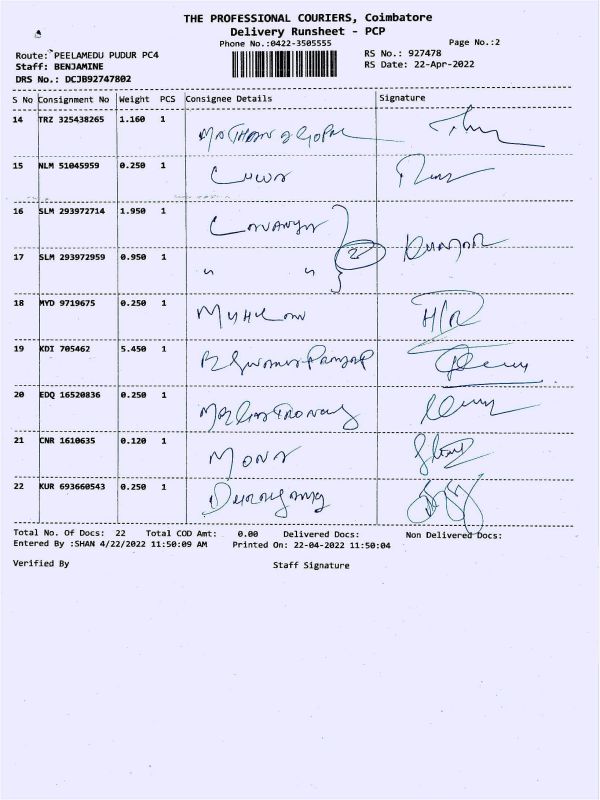 THE PROFESSIONAL COURIERS, Coimbatore
Delivery Runsheet - PCP
Phone No.:0422-3505555
Page No.:2
Route: PEELAMEDU PUDUR PC4
RS No.: 927478
Staff: BENJAMINE
RS Date: 22-Apr-2022
DRS No.: DCJB92747802
S No Consignment No Weight PCS Consignee Details Signature
14 TRZ 325438265 1.160 1
15 NLM 51045959 0.250 1
16 SLM 293972714 1.950 1 Lavanya
17 SLM 293972959 0.950 1 " "
2
18 MYD 9719675 0.250 1
19 KDI 705462 5.450 1
20 EDQ 16520836 0.250 1
21 CNR 1610635 0.120 1 Mona
22 KUR 693660543 0.250 1
Total No. Of Docs: 22 Total COD Amt: 0.00 Delivered Docs: Non Delivered Docs:
Entered By :SHAN 4/22/2022 11:50:09 AM Printed On: 22-04-2022 11:50:04
Verified By Staff Signature